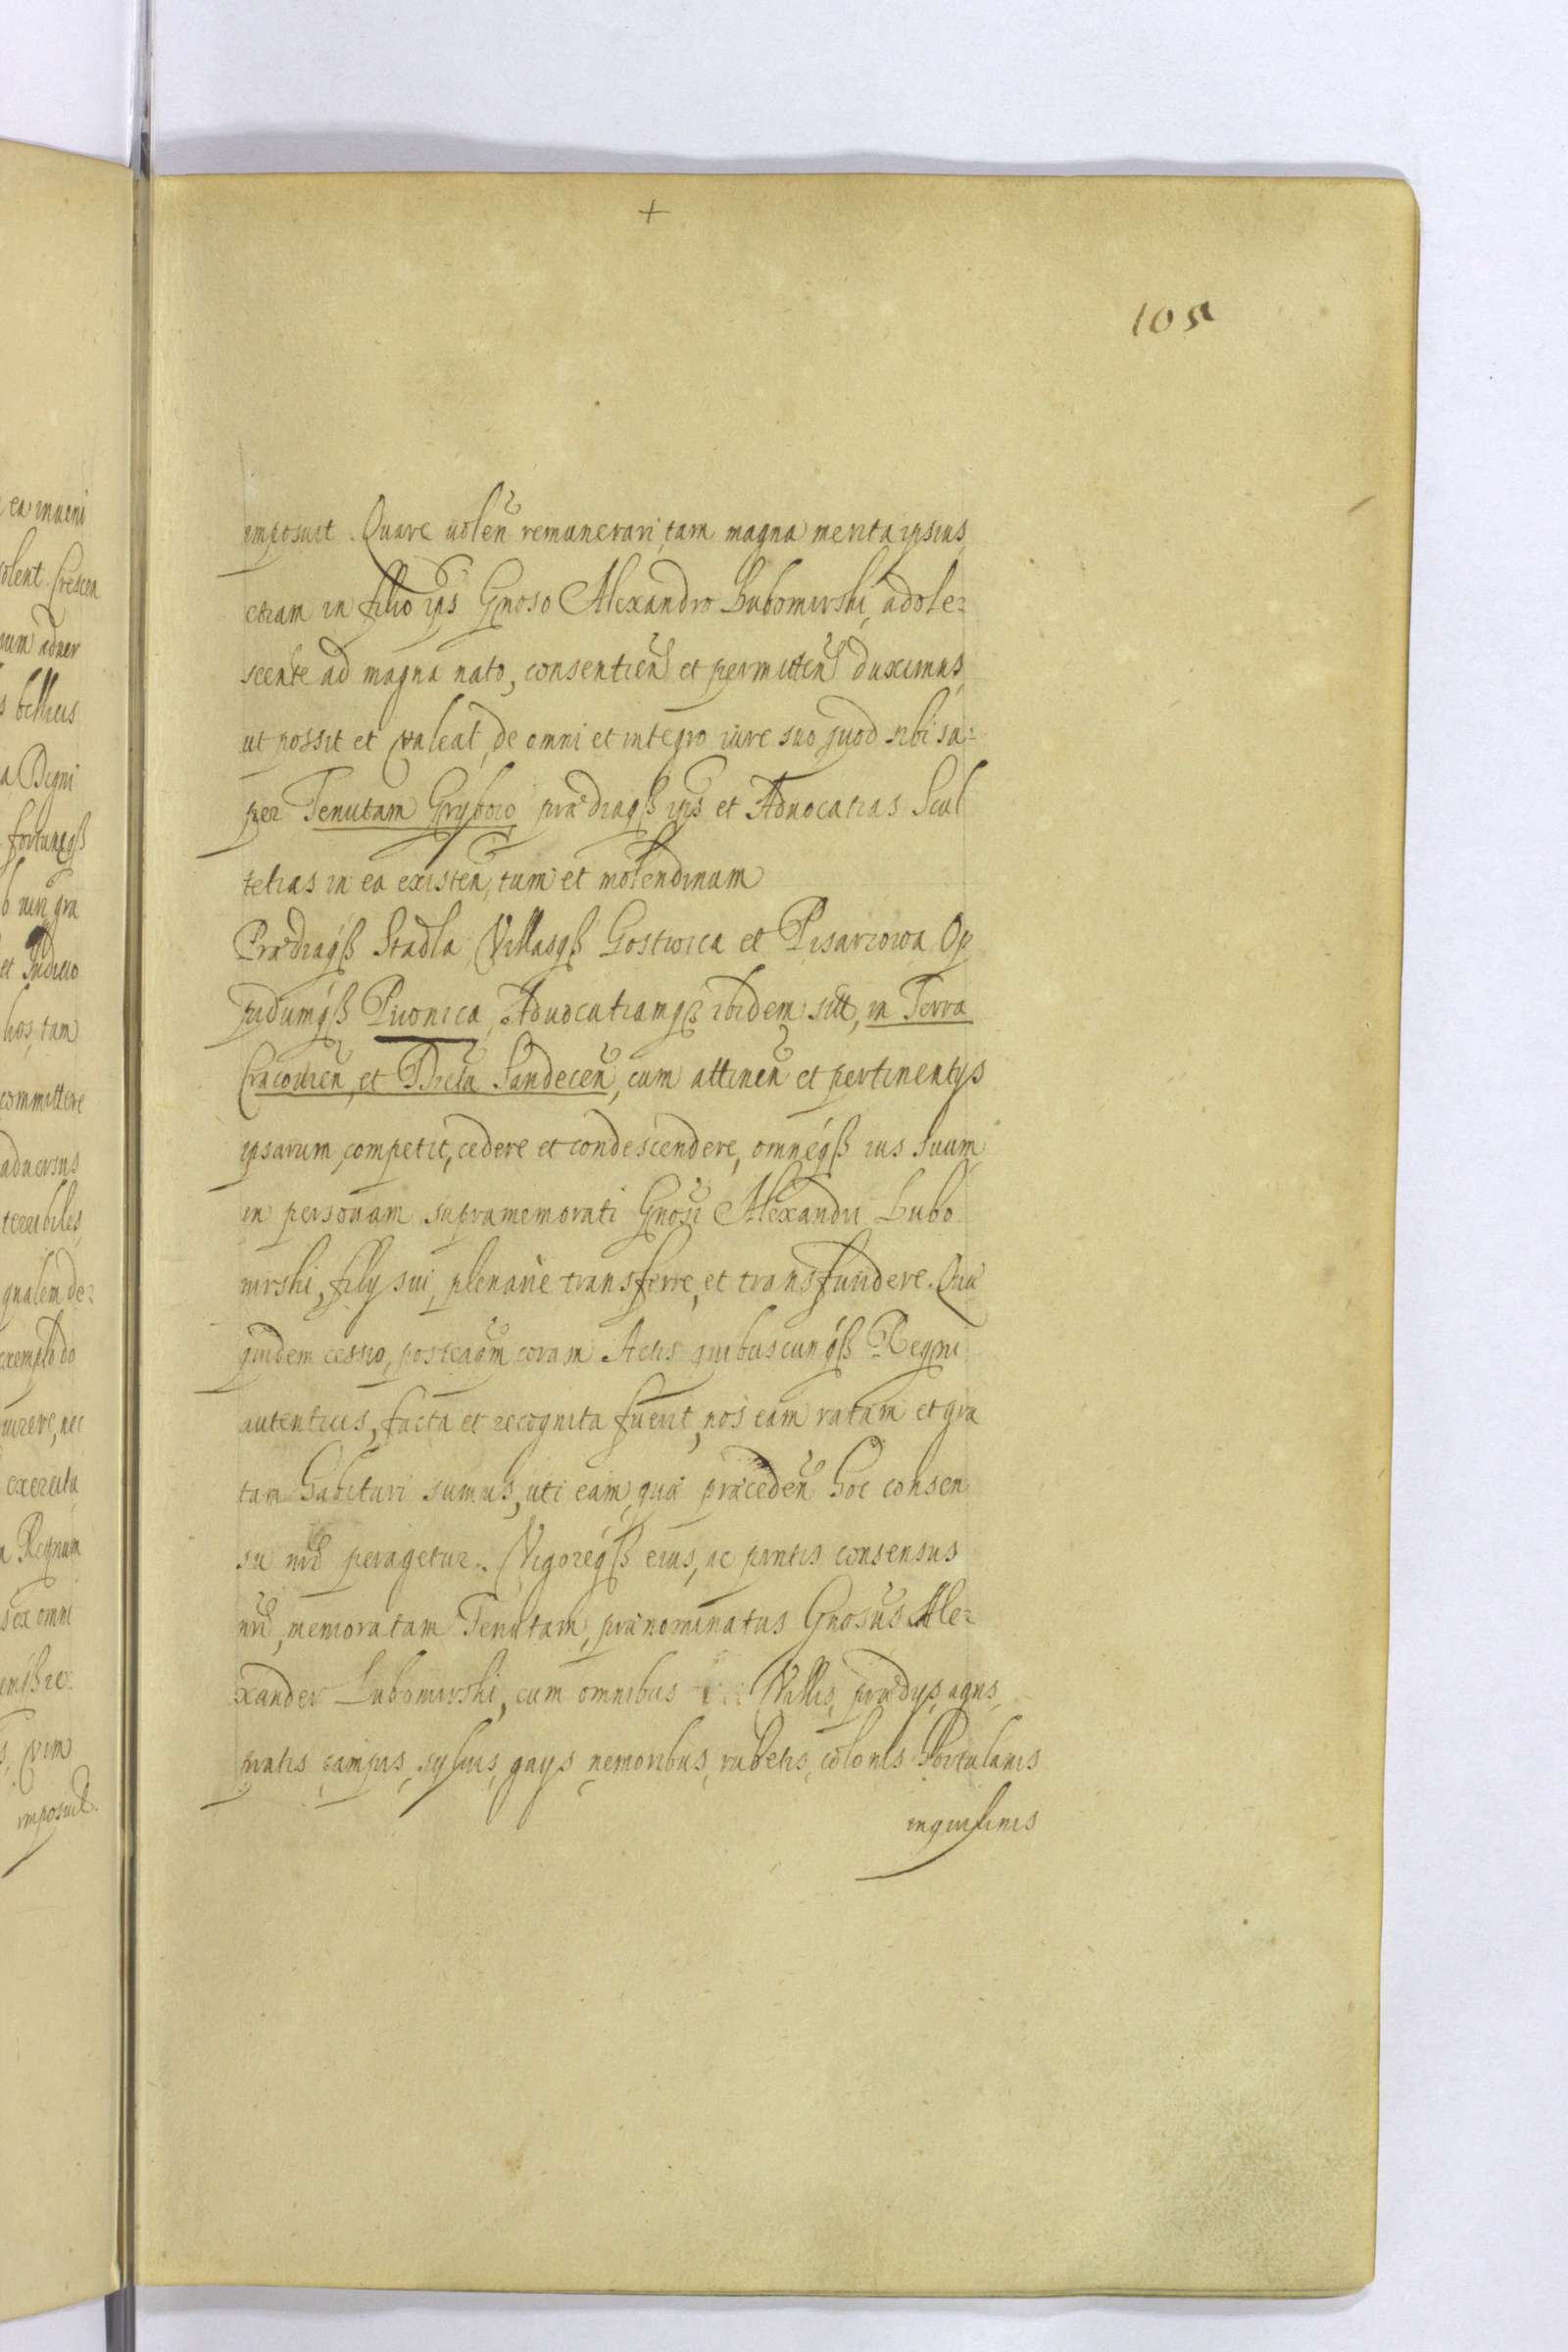 +
105
imposuit. Quare uolen remunerari, tam magna merita ipsius,
etiam in filio ips Gnoso Alexandro Lubomirski, adole=
scente ad magna nato, consentien et permitten duximus,
ut possit et valeat, de omni et integro iure suo quod sibi su=
per Tenutam Grybow prædiaqß ips et Aduocatias Scul
tetias in ea existen, tum et molendinum
Prædiaqß Stadla Villasqß Gostwica et Pisarzowa Op
pidumqß Piwnica, Aduocatiamqß ibidem sitt, in Terra
Cracouien, et Dictu Sandecen, cum attinen et pertinentys
ipsarum competit, cedere et condescendere, omneqß ius suum
in personam supramemorati Gnosi Alexandri Lubo
mirski, fily sui, plenarie transferre, et transfundere. Quæ
quidem cessio, posteaqm coram Actis quibuscunqß Regni
autenticis, facta et recognita fuerit, nos eam ratam et gra
tam habituri sumus, uti eam, quæ præceden hoc consen
su nro peragetur. Vigoreqß eius, ac pntis consensus
nri, memoratam Tenutam, prænominatus Gnosus Ale=
xander Lubomirski, cum omnibus Villis, prædys, agris,
pratis campis, syluis, gays nemoribus, rubetis, colonis hortulanis
inquilinis
ea inueni
olent. Crescen
num aduer
bellicis
Regni
fortuneqß
gra
et Judicio
hos, tam
committere
aduersus
terribiles,
qualem de=
exemplo do
nec
Regnum
ex omni
vim
imposuit.